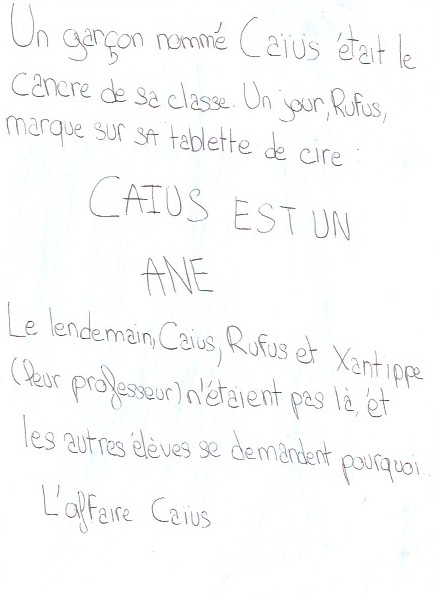 Un garçon nommé Caïus était le
cancre de sa classe. Un jour, Rufus,
marque sur SA tablette de cire :
CAIUS EST UN
ANE
Le lendemain, Caius, Rufus et Xantippe
(leur professeur) n'étaient pas là, et
les autres élèves se demandent pourquoi.
L'affaire Caïus